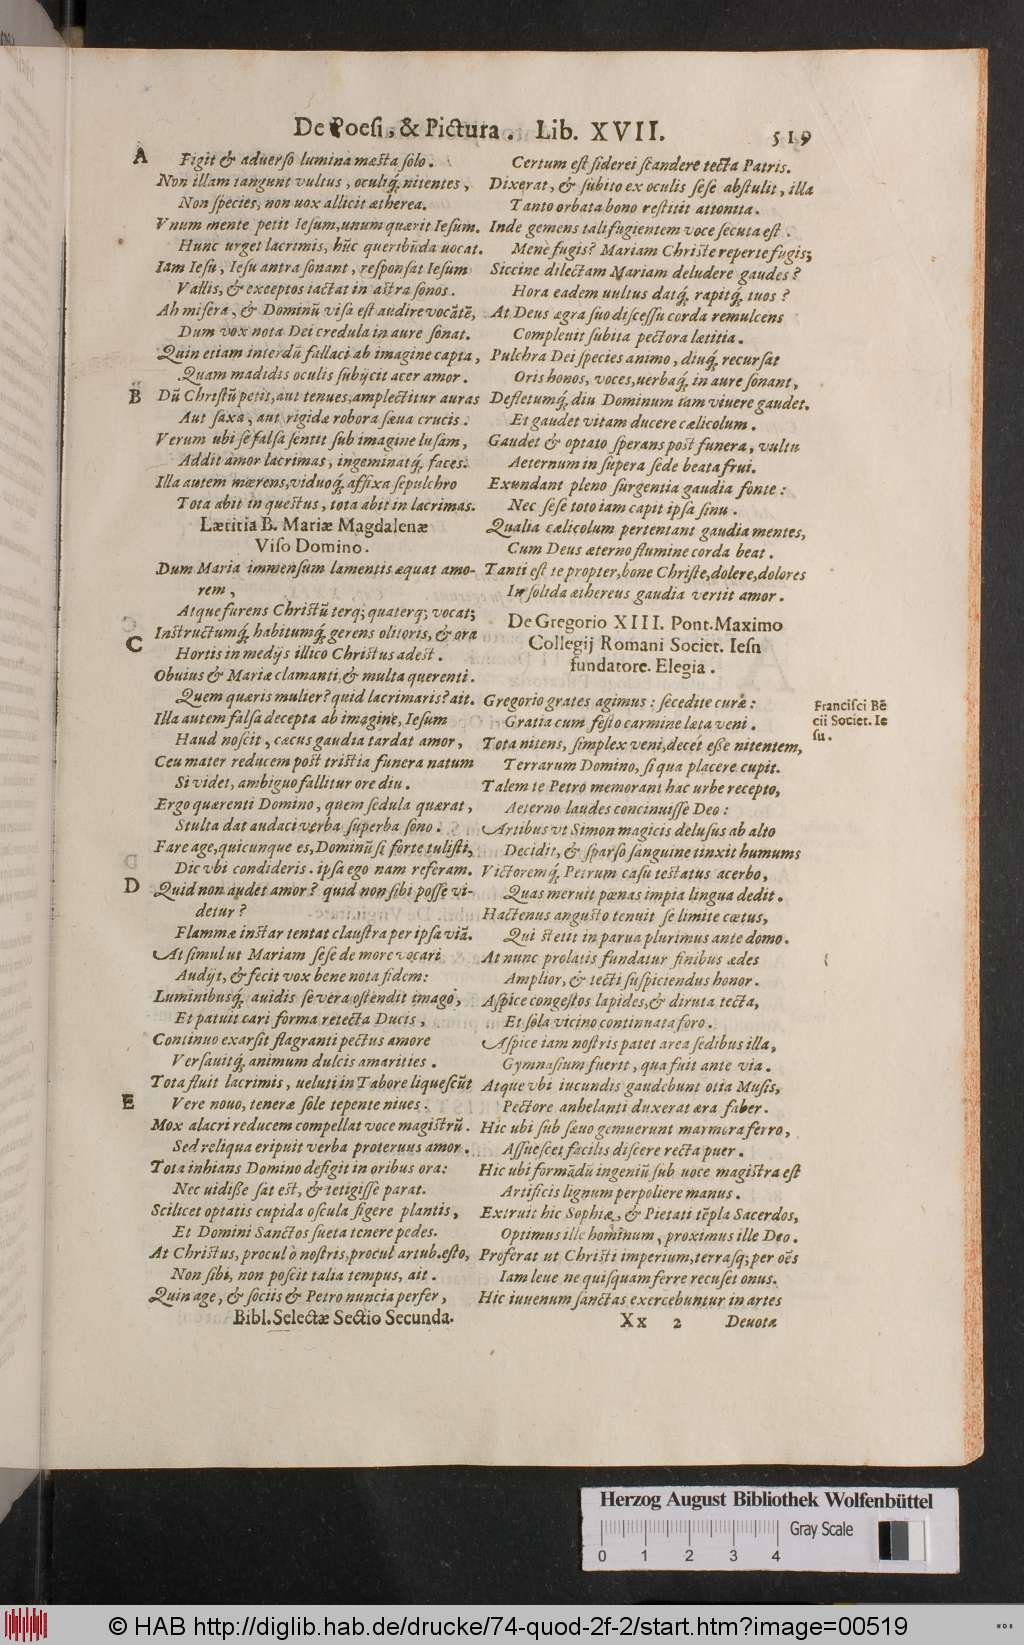 De Poesi, & Pictura. Lib. XVII. 519
A
Figit & aduerso lumina mæsta solo.
Non illam tangunt vultus, oculiq́, nitentes,
Non species, non uox allicit ætherea.
Vnum mente petit Iesum, unum quærit Iesum.
Hunc urget lacrimis, hũc queribũda uocat.
Iam Iesu, Iesu antra sonant, responsat Iesum
Vallis, & exceptos iactat in astra sonos.
Ah misera, & Dominũ visa est audire vocãtẽ,
Dum vox nota Dei credula in aure sonat.
Quin etiam interdũ fallaci ab imagine capta,
Quam madidis oculis subijcit acer amor.
B
Dũ Christũ petit, aut tenues, amplectitur auras
Aut saxa, aut rigidæ robora sæua crucis.
Verum ubi se falsa sentit sub imagine lusam,
Addit amor lacrimas, ingeminatq́, faces.
Illa autem mærens, viduoq́, affixa sepulchro
Tota abit in questus, tota abit in lacrimas.
Lætitia B. Mariæ Magdalenæ
Viso Domino.
Dum Maria immensum lamentis æquat amo-
rem,
Atque furens Christũ terq; quaterq; vocat;
C
Instructumq́, habitumq́, gerens olitoris, & ora
Hortis in medijs illico Christus adest.
Obuius & Mariæ clamanti, & multa querenti.
Quem quæris mulier? quid lacrimaris? ait.
Illa autem falsa decepta ab imagine, Iesum
Haud noscit, cæcus gaudia tardat amor,
Ceu mater reducem post tristia funera natum
Si videt, ambiguo fallitur ore diu.
Ergo quærenti Domino, quem sedula quærat,
Stulta dat audaci verba superba sono.
Fare age, quicunque es, Dominũ si forte tulisti,
Dic vbi condideris. ipsa ego nam referam.
D
Quid non audet amor? quid non sibi posse vi-
detur?
Flammæ instar tentat claustra per ipsa viã.
At simul ut Mariam sese de more vocari
Audijt, & fecit vox bene nota fidem:
Luminibusq́, auidis se vera ostendit imago,
Et patuit cari forma retecta Ducis,
Continuo exarsit flagranti pectus amore
Versauitq́, animum dulcis amarities.
Tota fluit lacrimis, ueluti in Tabore liquescũt
E
Vere nouo, teneræ sole tepente niues.
Mox alacri reducem compellat voce magistrũ.
Sed reliqua eripuit verba proteruus amor.
Tota inhians Domino defigit in oribus ora:
Nec uidisse sat est, & tetigisse parat.
Scilicet optatis cupida oscula figere plantis,
Et Domini Sanctos sueta tenere pedes.
At Christus, procul ò nostris, procul artub. esto,
Non sibi, non poscit talia tempus, ait.
Quin age, & sociis & Petro nuncia perfer,
Bibl. Selectæ Sectio Secunda.
Certum est siderei scandere tecta Patris.
Dixerat, & subito ex oculis sese abstulit, illa
Tanto orbata bono restitit attonita.
Inde gemens tali fugientem voce secuta est.
Mene fugis? Mariam Christe reperte fugis;
Siccine dilectam Mariam deludere gaudes?
Hora eadem uultus datq́, rapitq́, tuos?
At Deus ægra suo discessu corda remulcens
Compleuit subita pectora lætitia.
Pulchra Dei species animo, diuq́, recursat
Oris honos, voces, uerbaq́, in aure sonant,
Defletumq́, diu Dominum iam viuere gaudet.
Et gaudet vitam ducere cælicolum.
Gaudet & optato sperans post funera, vultu
Aeternum in supera sede beata frui.
Exundant pleno surgentia gaudia fonte:
Nec sese toto iam capit ipsa sinu.
Qualia cælicolum pertentant gaudia mentes,
Cum Deus æterno flumine corda beat.
Tanti est te propter, bone Christe, dolere, dolores
In solida æthereus gaudia vertit amor.
De Gregorio XIII. Pont. Maximo
Collegij Romani Societ. Iesu
fundatore. Elegia.
Francisci Bẽ
cii Societ. Ie
su.
Gregorio grates agimus: secedite curæ:
Gratia cum festo carmine læta veni.
Tota nitens, simplex veni, decet esse nitentem,
Terrarum Domino, si qua placere cupit.
Talem te Petro memorant hac urbe recepto,
Aeterno laudes concinuisse Deo:
Artibus vt Simon magicis delusus ab alto
Decidit, & sparso sanguine tinxit humums
Victoremq́, Petrum casu testatus acerbo,
Quas meruit pœnas impia lingua dedit.
Hactenus angusto tenuit se limite cœtus,
Qui stetit in parua plurimus ante domo.
At nunc prolatis fundatur finibus ædes
Amplior, & tecti suspiciendus honor.
Aspice congestos lapides, & diruta tecta,
Et sola vicino continuata foro.
Aspice iam nostris patet area sedibus illa,
Gymnasium fuerit, qua fuit ante via.
Atque vbi iucundis gaudebunt otia Musis,
Pectore anhelanti duxerat æra faber.
Hic ubi sub sæuo gemuerunt marmora ferro,
Assuescet facilis discere recta puer.
Hic ubi formãdũ ingeniũ sub uoce magistra est
Artificis lignum perpoliere manus.
Extruit hic Sophiæ, & Pietati tẽpla Sacerdos,
Optimus ille hominum, proximus ille Deo.
Proferat ut Christi imperium, terrasq; per oẽs
Iam leue ne quisquam ferre recuset onus.
Hic iuuenum sanctas exercebuntur in artes
Xx 2 Deuotæ
Herzog August Bibliothek Wolfenbüttel
Gray Scale
0 1 2 3 4
© HAB http://diglib.hab.de/drucke/74-quod-2f-2/start.htm?image=00519